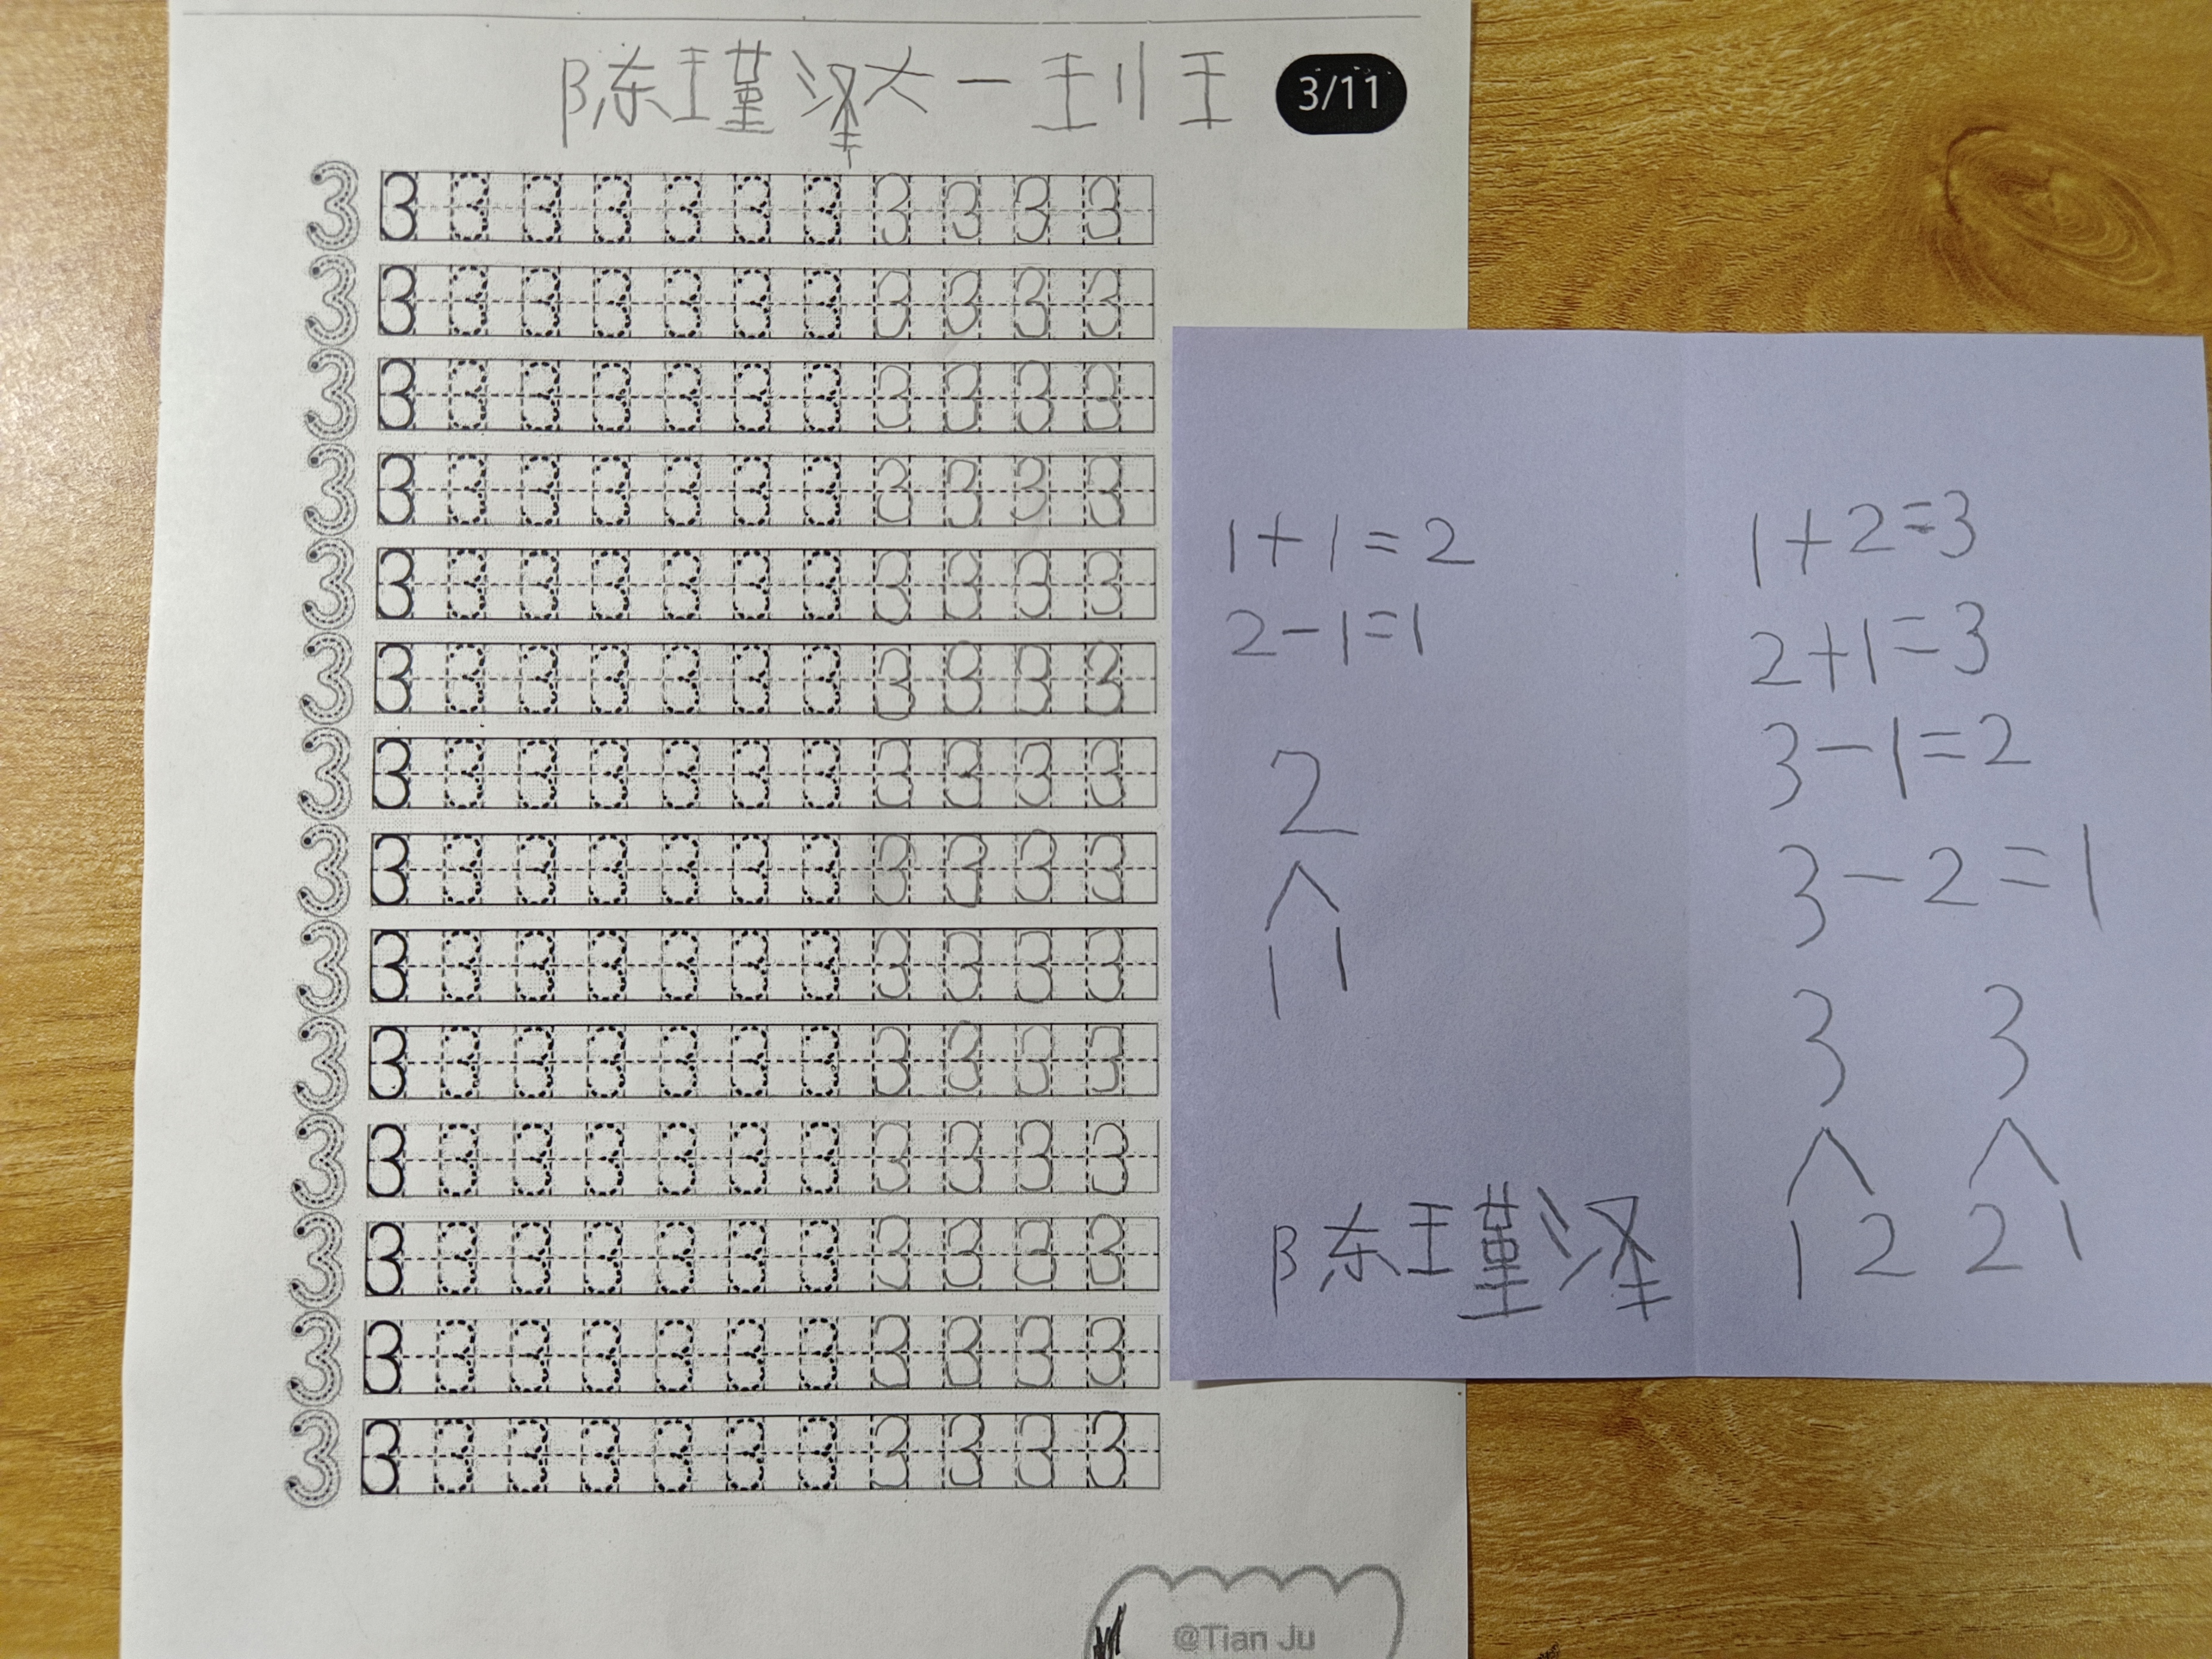 陈瑾泽大一班
3/11
3 3 3 3 3 3 3 3 3 3 3 3
3 3 3 3 3 3 3 3 3 3 3 3
3 3 3 3 3 3 3 3 3 3 3 3
3 3 3 3 3 3 3 3 3 3 3 3
3 3 3 3 3 3 3 3 3 3 3 3
3 3 3 3 3 3 3 3 3 3 3 3
3 3 3 3 3 3 3 3 3 3 3 3
3 3 3 3 3 3 3 3 3 3 3 3
3 3 3 3 3 3 3 3 3 3 3 3
3 3 3 3 3 3 3 3 3 3 3 3
3 3 3 3 3 3 3 3 3 3 3 3
3 3 3 3 3 3 3 3 3 3 3 3
3 3 3 3 3 3 3 3 3 3 3 3
3 3 3 3 3 3 3 3 3 3 3 3
@Tian Ju
1+1=2
2-1=1
2
1 1
陈瑾泽
1+2=3
2+1=3
3-1=2
3-2=1
3 3
1 2 2 1